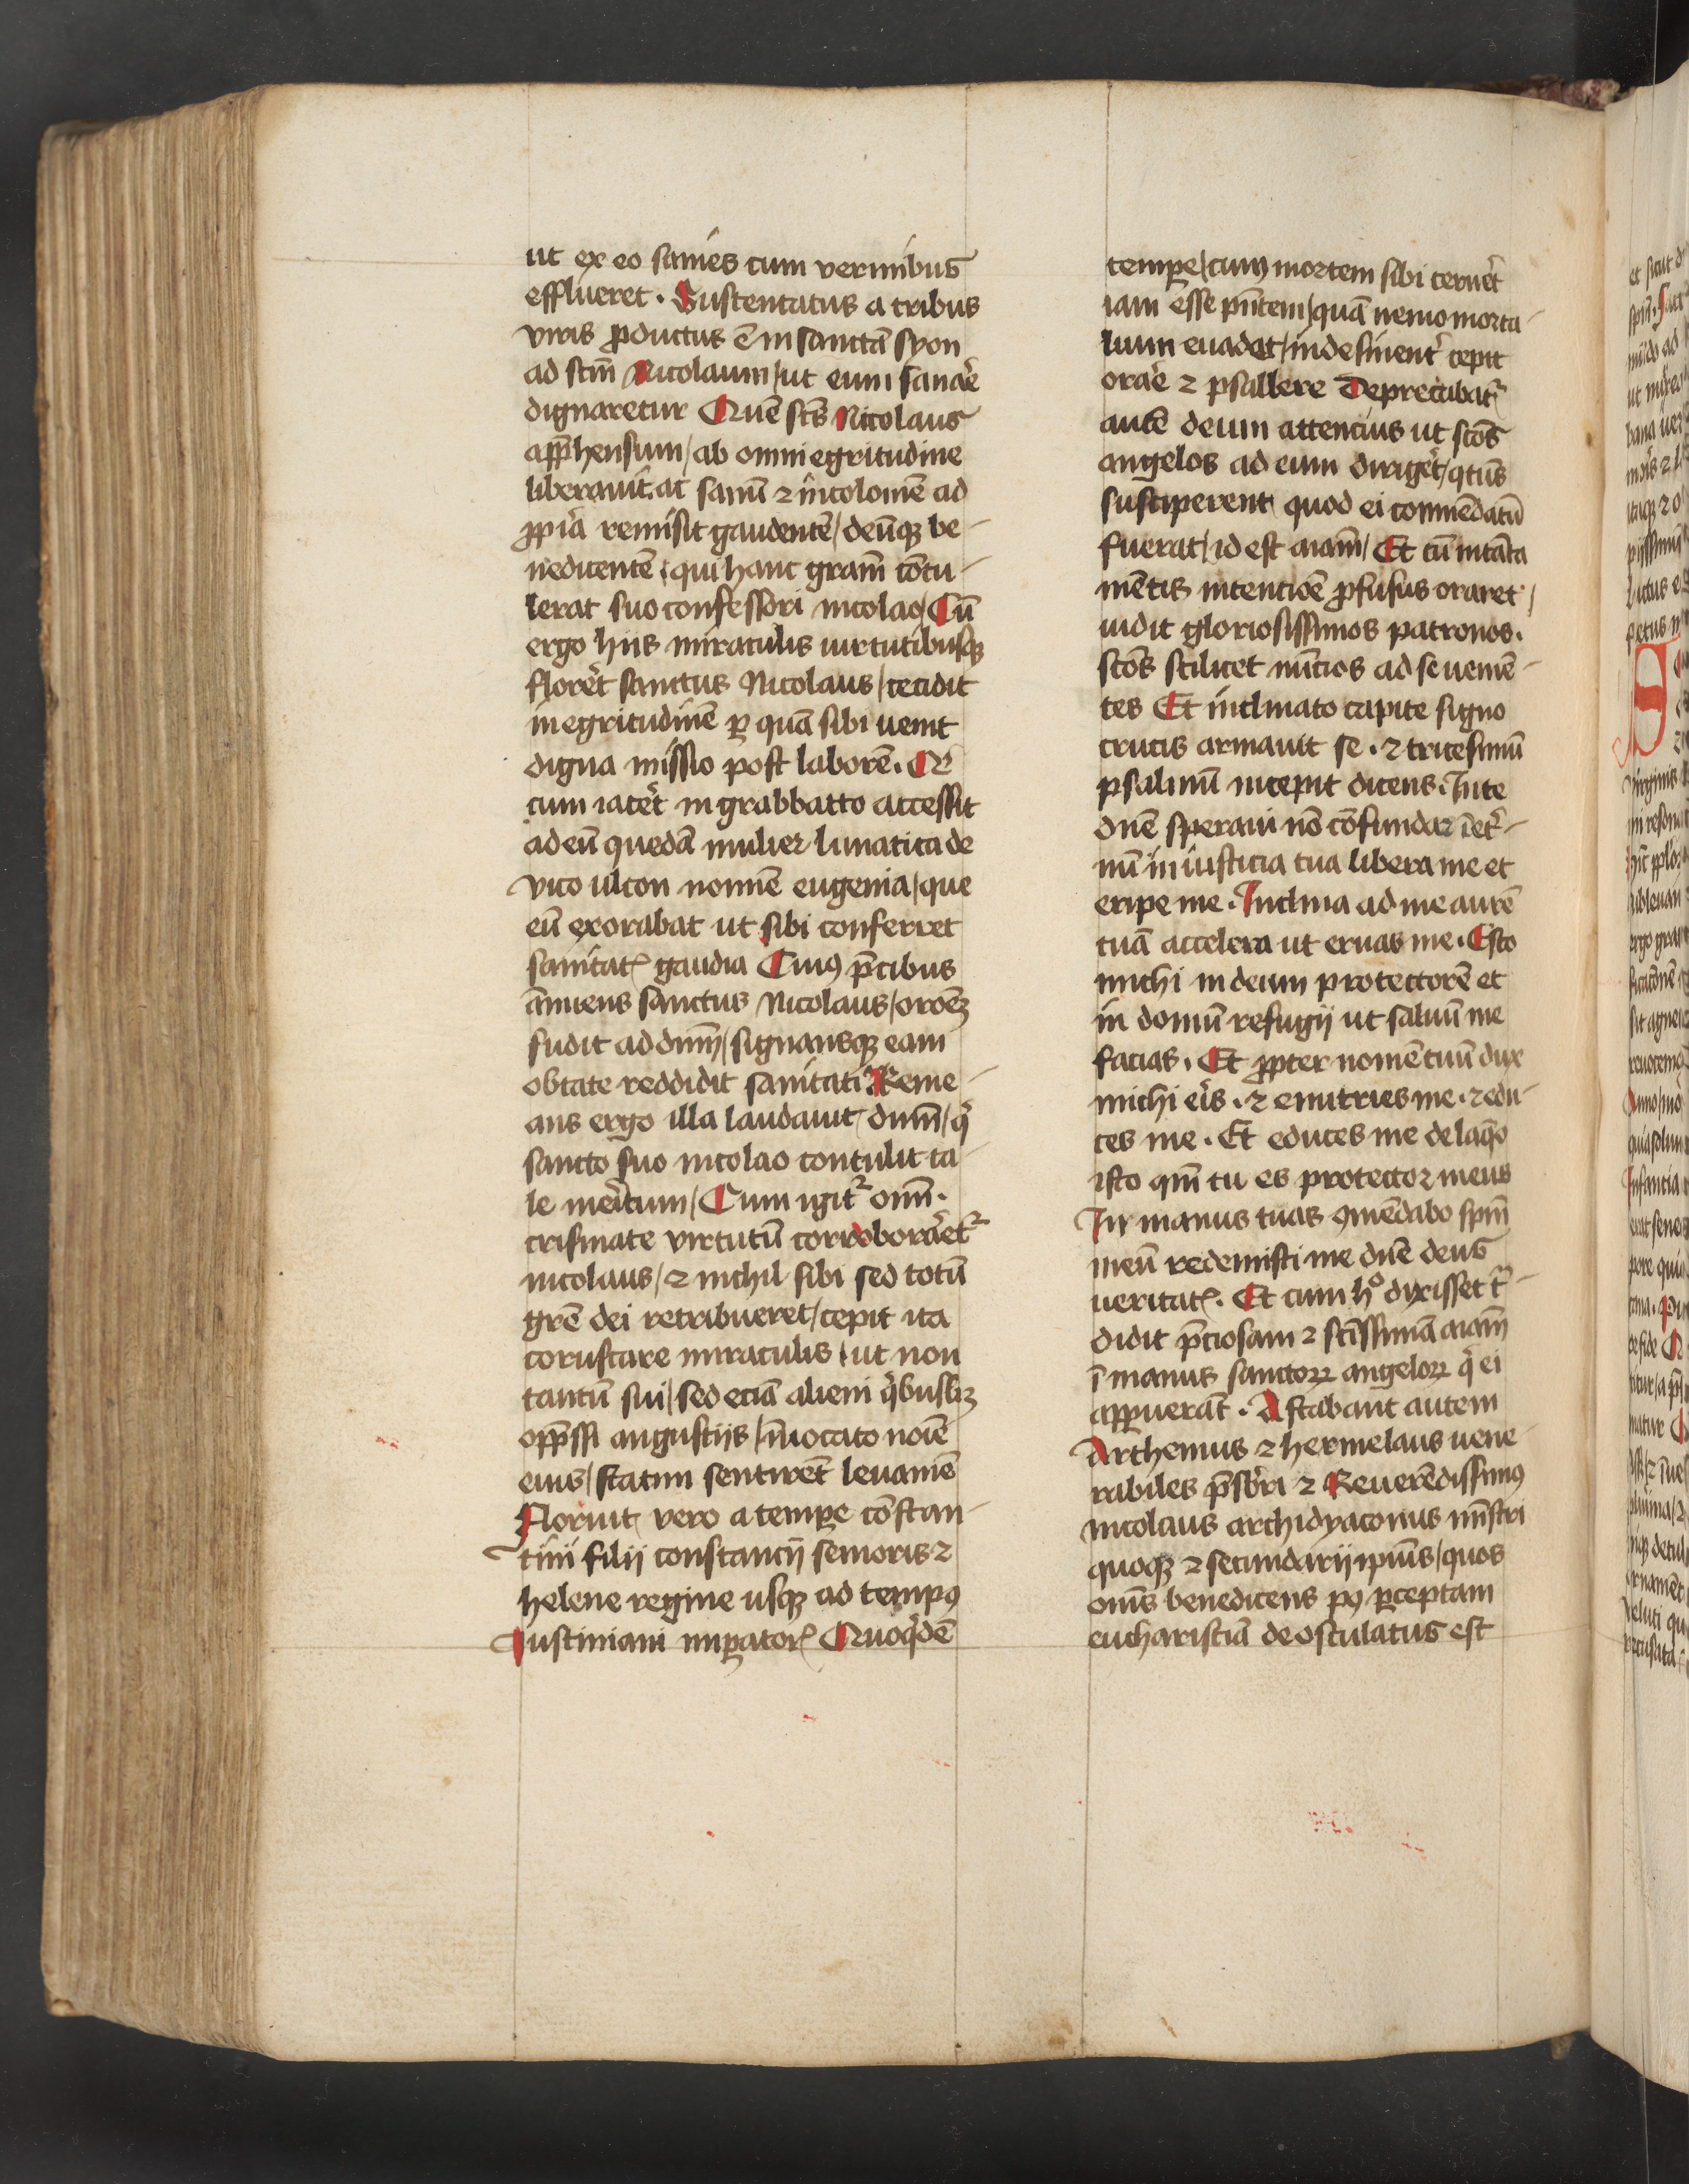 ut ex eo sanies cum vermibus
efflueret. Sustentatus a tribus
viris ꝓductus ē in sanctā syon
ad sc̄m Nicolaum / ut eum sanar̄e
dignaretur Quē sc̄s Nicolaus
app̄hensum / ab omni egritudine
liberauit. ac sanū ⁊ incolomē ad
ꝓpria remisit gaudentē / deūqꝫ be-
nedicentē / qui hanc gram̄ cōtu-
lerat suo confessori nicolao / Cū
ergo hiis miraculis uirtutibusqꝫ
florer̄t sanctus Nicolaus / cecidit
in egritudinē ꝑ quā sibi uenit
digna missio post laborē. Et
cum iacer̄t in grabbatto accessit
ad eū quedā mulier lunatica de
vico ulcon nomīe eugenia / que
eū exorabat ut sibi conferret
sanitatꝭ gaudia Cuiꝯ p̄cibus
ānuens sanctus Nicolaus / oroēꝫ
fudit ad dnm̄ / signansqꝫ eam
obtate reddidit sanitati Reme-
ans ergo illa laudauit dnm̄ / qͥ
sancto suo nicolao contulit ta-
le meritum / Cum igitᷣ omī.
crismate virtutū corroborar̄etᷣ
nicolaus / ⁊ nichil sibi sed totū
gr̄e dei retribueret / cepit ita
coruscare miraculis / ut non
tantū sui / sed eciā alieni qͥbuslꝫ
opp̄ssi angustijs / īuocato noīe
eius / statim sentirēt leuamē
Floruit vero a tempe cōstan-
tini filij constancij senioris ⁊
helene regine usqꝫ ad tempꝯ
Iustiniani imꝑatorꝭ Quoqͥdē
tempe / cum mortem sibi cerner̄t
iam esse pn̄tem / quā nemo morta-
lium euadet / indesinentᷣ cepit
orar̄e ⁊ psallere Deprecabatᷣ
autē deum attencius ut scōs
angelos ad eum dirigēt / qtūs
susciperent quod ei commēdatū
fuerat / id est aīam / Et cū ī tāta
mētis intentiōe ꝓfusus oraret /
uidit gloriosissimos patronos.
scōs scilicet nūcios ad se ueniē-
tes Et inclinato capite signo
crucis armauit se. ⁊ tricesimū
psalmū incepit dicens. In te
dn̄e speraui nō cōfundar ī etᷣ-
nū in iusticia tua libera me et
eripe me. Inclina ad me aurē
tuā accelera ut eruas me. Esto
michi in deum protectorē et
in domū refugij ut saluū me
facias. Et ꝓpter nomē tuū dux
michi eris. ⁊ enutries me. ⁊ edu-
ces me. Et educes me de laq̄o
isto qm̄ tu es protector meus
In manus tuas ꝯmēdabo spm̄
meū redemisti me dn̄e deus
ueritatꝭ. Et cum hͦ dixisset tᷣ-
didit p̄ciosam ⁊ scīssimā aīam
ī manus sanctoꝝ angeloꝝ qͥ ei
appuerāt. Astabant autem
Arthemus ⁊ hermelaus uene-
rabiles p̄sbr̄i ⁊ Reuerēdissimꝯ
nicolaus archidyaconus mīstri
quoqꝫ ⁊ secundarij ipius / quos
om̄s benedicens pꝯ ꝑceptam
eucharistiā deosculatus est